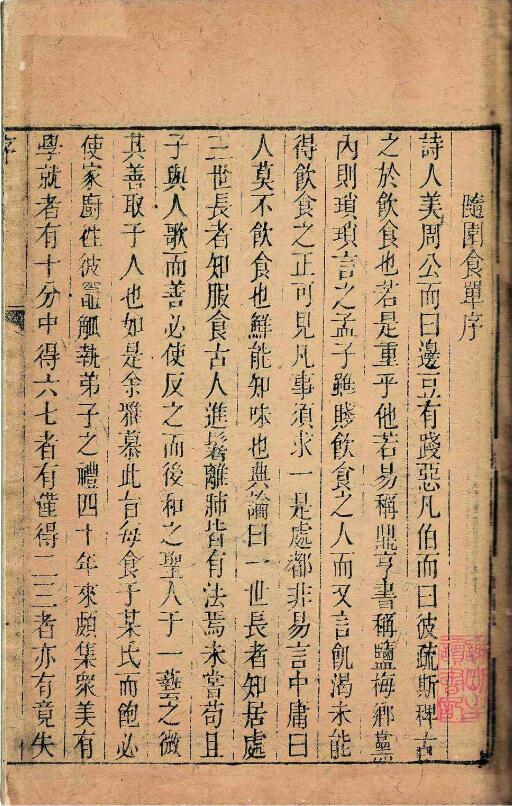 隨園食單序
詩人美周公而曰籩豆有踐惡凡伯而曰彼疏斯稗古
之於飲食也若是重乎他若易稱鼎亨書稱鹽梅鄉黨
內則瑣瑣言之孟子雖賤飲食之人而又言飢渴未能
得飲食之正可見凡事須求一是處都非易言中庸曰
人莫不飲食也鮮能知味也典論曰一世長者知居處
三世長者知服食古人進鬐離肺皆有法焉未嘗苟且
子與人歌而善必使反之而後和之聖人于一藝之微
其善取于人也如是余雅慕此旨每食于某氏而飽必
使家廚往彼竈觚執弟子之禮四十年來頗集眾美有
學就者有十分中得六七者有僅得二三者亦有竟失
序